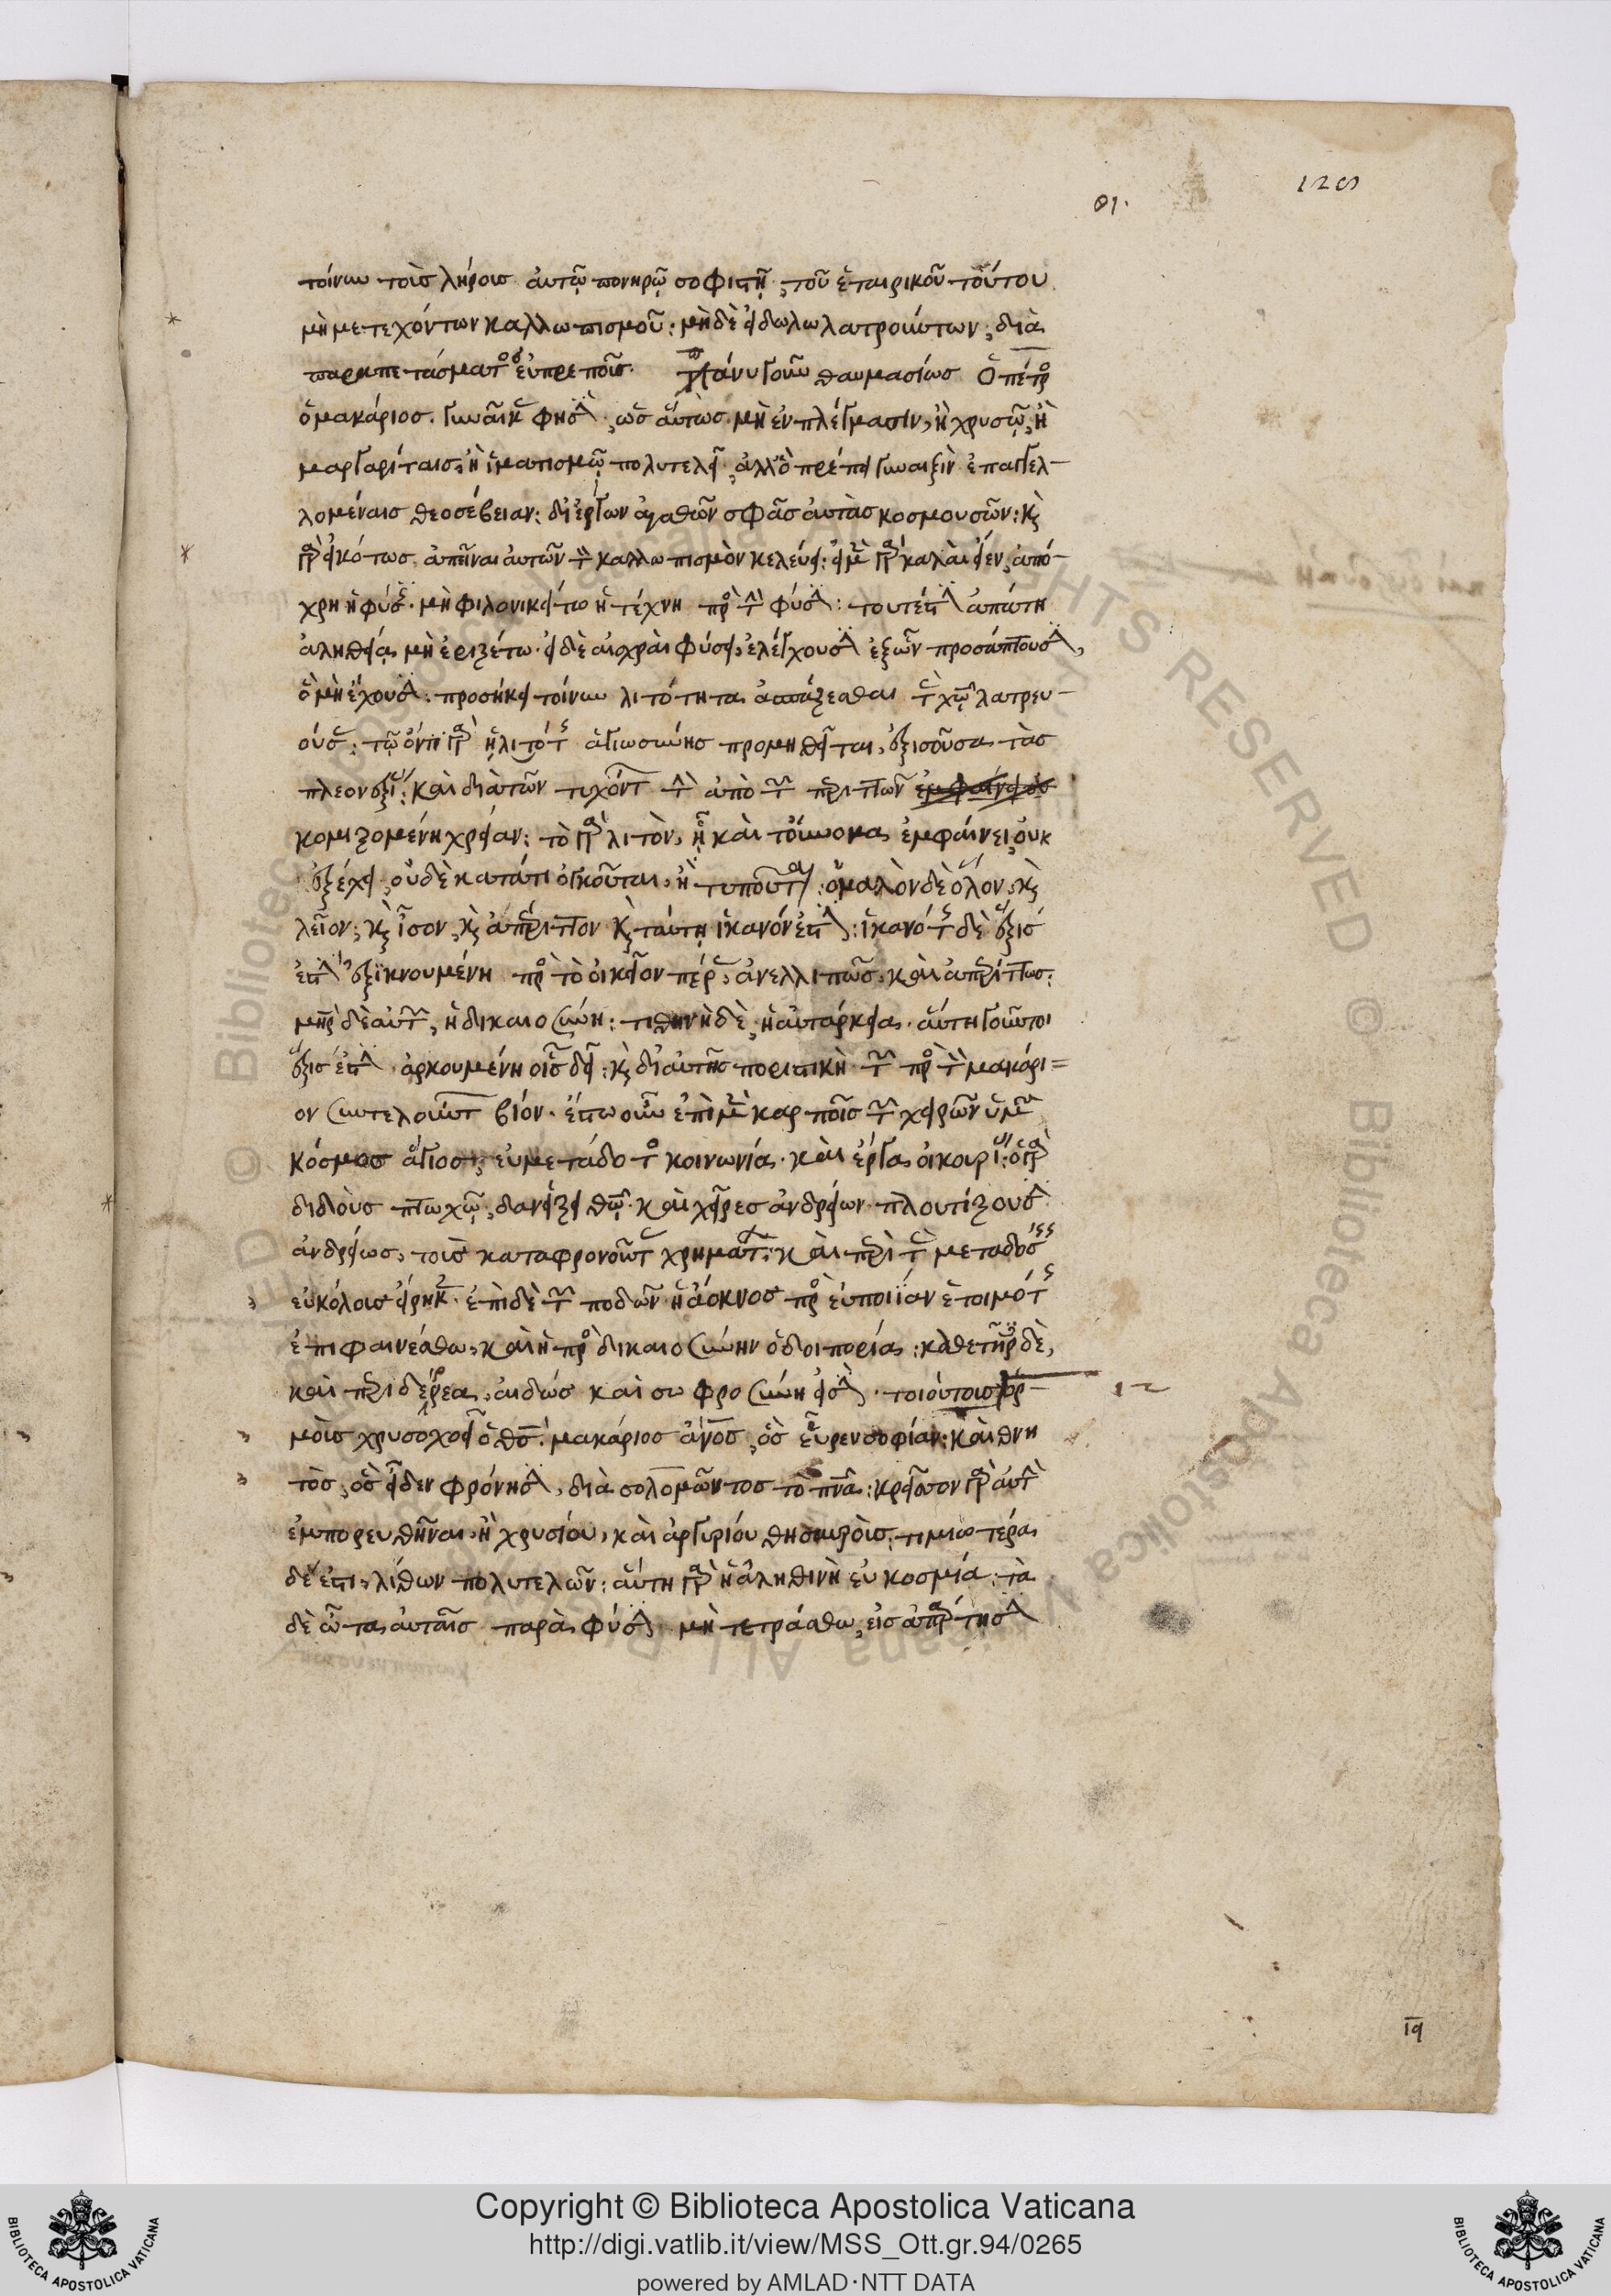 129
θι.
τοίνυν τοῖς λήροις αὐτῷ πονηρῷ σοφιστῇ, τοῦ ἑταιρικοῦ τούτου
μὴ μετεχόντων καλλωπισμοῦ: μὴ δὲ εἰδωλολατρούντων, διὰ
παραπετάσματος εὐπρεποῦς. Πάνυ γοῦν θαυμασίως Ὁ πέτρος
ὁ μακάριος. γυναῖκας φησὶν, ὡσαύτως. μὴ ἐν πλέγμασιν, ἢ χρυσῷ, ἢ
μαργαρίταις, ἢ ἱματισμῷ πολυτελεῖ, ἀλλ' ὃ πρέπει γυναιξὶν ἐπαγγελ-
λομέναις θεοσέβειαν: δι' ἔργων ἀγαθῶν σφᾶς αὐτὰς κοσμουσῶν: κ
γὰρ εἰκότως ἀπεῖναι αὐτῶν τὸν καλλωπισμὸν κελεύει: εἰ μὲν γὰρ καλαὶ εἶεν, ἀπό-
χρη ἡ φύσις. μὴ φιλονικείτω ἡ τέχνη πρὸς τὴν φύσιν: τουτέστιν ἀπάτη
ἀληθείᾳ μὴ ἐριζέτω. εἰ δὲ αἰσχραὶ φύσει, ἐλέγχουσιν ἐξ ὧν προσάπτουσιν,
ὃ μὴ ἔχουσιν: προσήκει τοίνυν λιτότητα ἀσπάζεσθαι τὰς χῷ λατρευ-
ούσας: τῷ ὄντι γὰρ ἡ λιτότης ἁγιωσύνης προμηθεῖται, ἐξισοῦσα τὰς
πλεονεξίας: καὶ διὰ τῶν τυχόντων τὴν ἀπὸ τῶν περιττῶν
κομιζομένη χρείαν: τὸ γὰρ λιτὸν, ᾗ καὶ τοὔνομα ἐμφαίνει, οὐκ
ἐξέχει, οὐδὲ κατά τι ὀγκοῦται, ἢ τυποῦται: ὁμαλὸν δὲ ὅλον, κ
λεῖον, κ ἴσον, κ ἀπέριττον κ ταύτῃ ἱκανόν ἐστιν: ἱκανότης δὲ ἕξις
ἐστὶν ἐξικνουμένη πρὸς τὸ οἰκεῖον πέρας, ἀνελλιπῶς, καὶ ἀπερίττως:
μήτηρ δὲ αὐτῶν, ἡ δικαιοσύνη: τιθηνὴ δὲ, ἡ αὐτάρκεια. αὕτη γοῦν τοι
ἕξις ἐστὶν ἀρκουμένη οἷς δεῖ: κ δι' αὐτῆς ποριστικὴ τῶν πρὸς τὸν μακάρι=
ον συντελούντων βίον. ἔστω οὖν ἐπὶ μὲν καρποῖς τῶν χειρῶν ὑμῶν
κόσμος ἅγιος, εὐμετάδοτος κοινωνία. καὶ ἔργα οἰκουρίας: ὁ γὰρ
διδοὺς πτωχῷ, δανείζει θῷ. καὶ χεῖρες ἀνδρείων πλουτίζουσιν
ἀνδρείως, τοὺς καταφρονοῦντας χρημάτων: καὶ περὶ τὰς μεταδόσεις
εὐκόλους εἴρηκε. ἐπὶ δὲ τῶν ποδῶν ἡ ἄοκνος πρὸς εὐποιΐαν ἑτοιμότης
ἐπιφαινέσθω, καὶ ἡ πρὸς δικαιοσύνην ὁδοιπορία: καθετῆρες δὲ,
καὶ περιδέρρεα, αἰδὼς καὶ σωφροσύνη εἰσίν. τοιούτους ὁρ-
μοὺς χρυσοχοεῖ ὁ θς. μακάριος ἄνος, ὃς εὗρεν σοφίαν: καὶ θνη
τὸς, ὃς εἶδεν φρόνησιν, διὰ σολομῶντος τὸ πνα: κρεῖσσον γὰρ αὐτὴν
ἐμπορευθῆναι, ἢ χρυσίου, καὶ ἀργυρίου θησαυρούς: τιμιωτέρα
δέ ἐστι, λίθων πολυτελῶν: αὕτη γὰρ ἡ ἀληθινὴ εὐκοσμία: τὰ
δὲ ὦτα αὐταῖς παρὰ φύσιν μὴ τετράσθω, εἰς ἀπάρτησιν
Copyright © Biblioteca Apostolica Vaticana
http://digi.vatlib.it/view/MSS_Ott.gr.94/0265
powered by AMLAD·NTT DATA
BIBLIOTECA APOSTOLICA VATICANA
BIBLIOTECA APOSTOLICA VATICANA